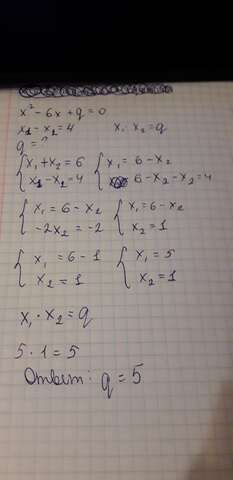 x² - 6x + q = 0
x₁ - x₂ = 4 x₁ x₂ = q
q = ?
{ x₁ + x₂ = 6 { x₁ = 6 - x₂
{ x₁ - x₂ = 4 { 6 - x₂ - x₂ = 4
{ x₁ = 6 - x₂ { x₁ = 6 - x₂
{ -2x₂ = -2 { x₂ = 1
{ x₁ = 6 - 1 { x₁ = 5
{ x₂ = 1 { x₂ = 1
x₁ · x₂ = q
5 · 1 = 5
Ответ: q = 5